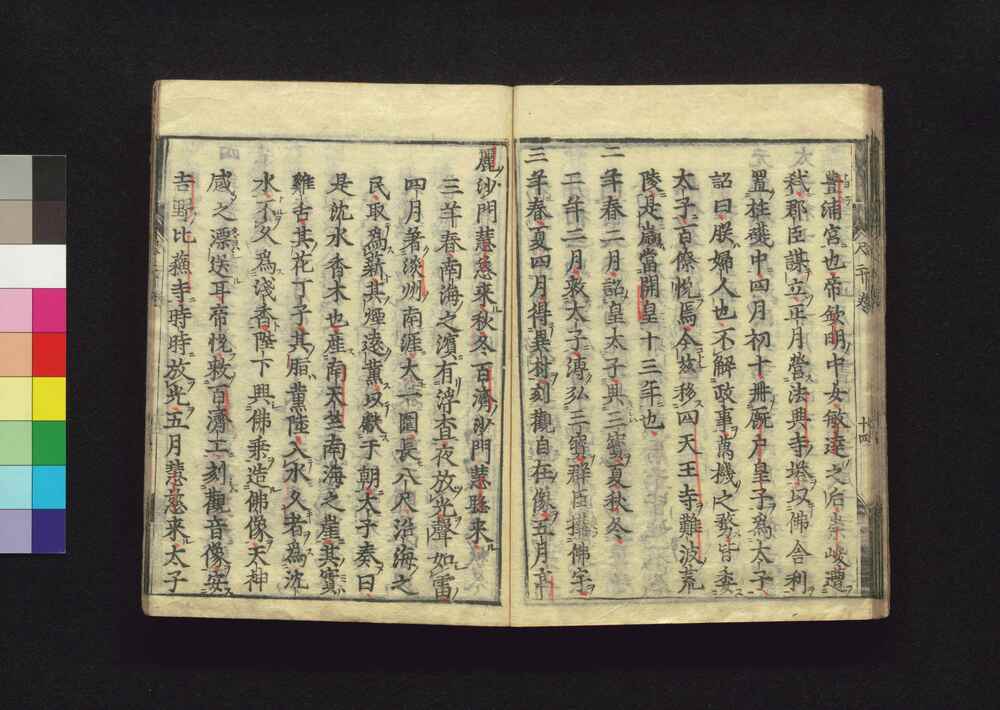 豊浦宮也帝欽明中女敏達之后崇峻遭
弑郡臣謀立正月營法興寺塔以佛舎利
置柱礎中四月初十册厩戸皇子為太子
詔曰朕婦人也不解政事萬機之務皆委
太子百僚悦焉今玆移四天王寺難波荒
陵是歳當開皇十三年也
二年春二月詔皇太子興三寳夏秋冬
二年二月敕太子溥弘三寳群臣搆佛宇
三年春夏四月得異材刻觀自在像五月高
麗沙門慧慈来秋冬百濟沙門慧聡来
三年春南海之濵有浮査夜放光聲如雷
四月着淡州南涯大一圍長八尺沿海之
民取為薪其煙遠薫以獻于朝太子奏曰
是沈水香木也産南天竺南海之崖其實
雞舌其花丁子其脂薫陸入水久者為沈
水不久為淺香陛下興佛乗造佛像天神
感之漂送耳帝悦敕百濟工刻觀音像安
吉野比蘓寺時時放光五月慧慈来太子
十四